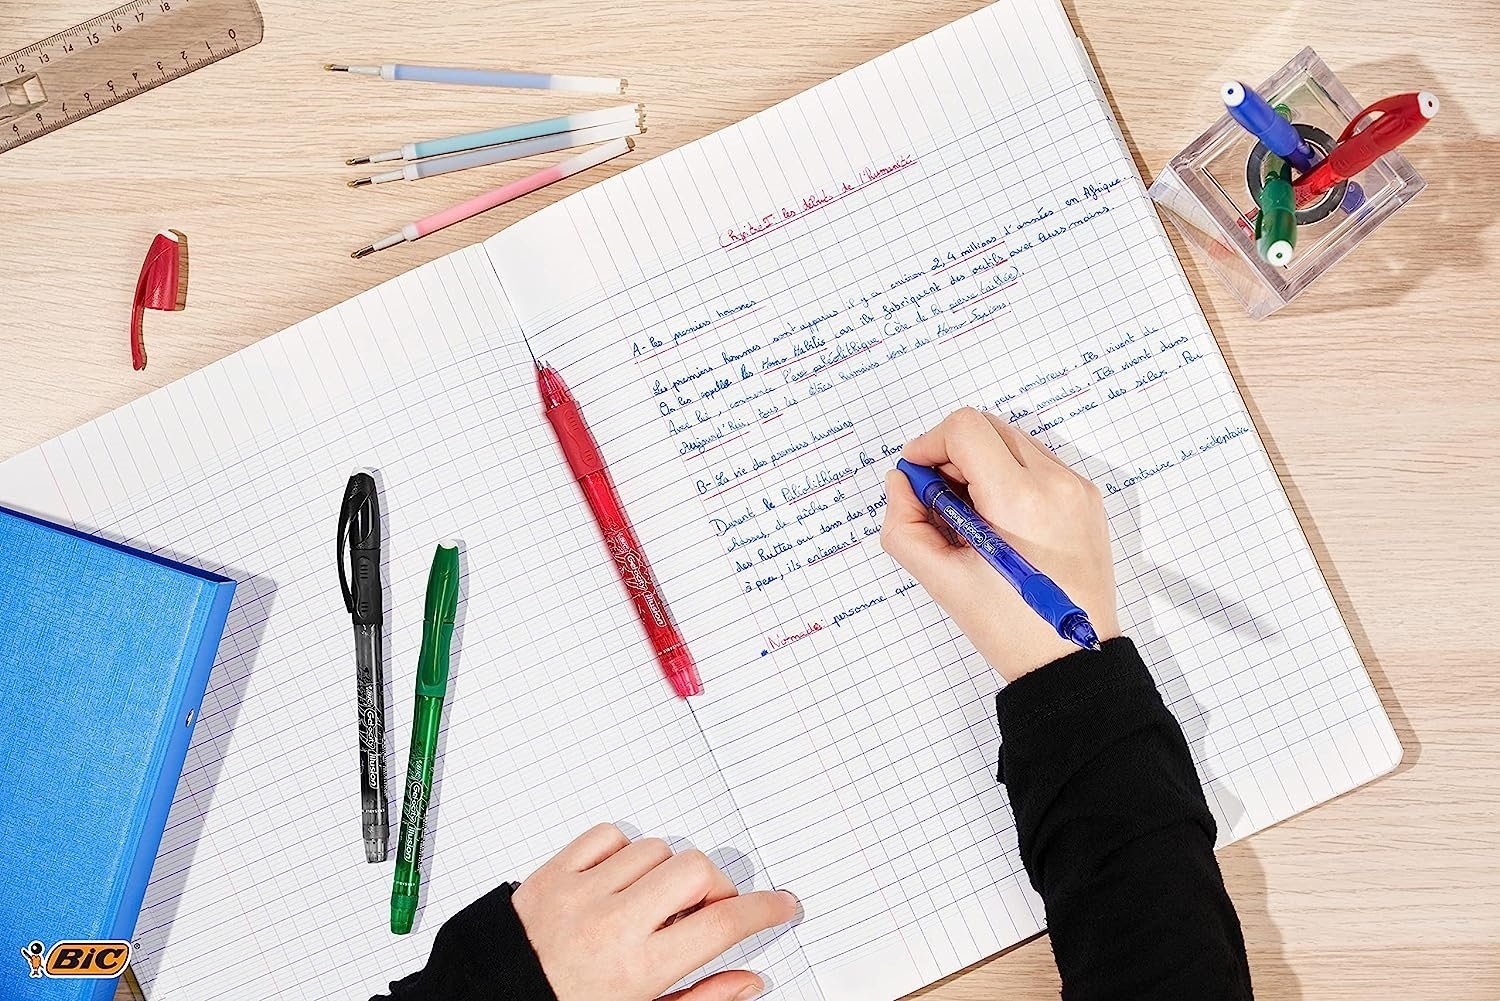 Chapitre I: les débuts de l'humanité
A- les premiers hommes
Les premiers hommes sont apparus il y a environ 2,4 millions d'années en Afrique.
On les appelle les Homo Habilis car ils fabriquent des outils avec leurs mains.
Avec lui, commence l'ère paléolithique (ère de la pierre taillée).
Aujourd'hui, tous les êtres humains sont des Homo Sapiens.
B- La vie des premiers humains
Durant le Paléolithique, les hom très peu nombreux. Ils vivent de
chasses, de pêches et des nomades. Ils vivent dans
des huttes ou dans des grott armes avec des silex. Peu
à peu, ils enterrent leurs
• Nomade: personne qui le contraire de sédentaire
BIC Gelocity illusion
BIC Gelocity illusion
BIC Gelocity illusion
BIC
BIC
0 1 2 3
6 7 8 9
12 13 14 15 16 17 18